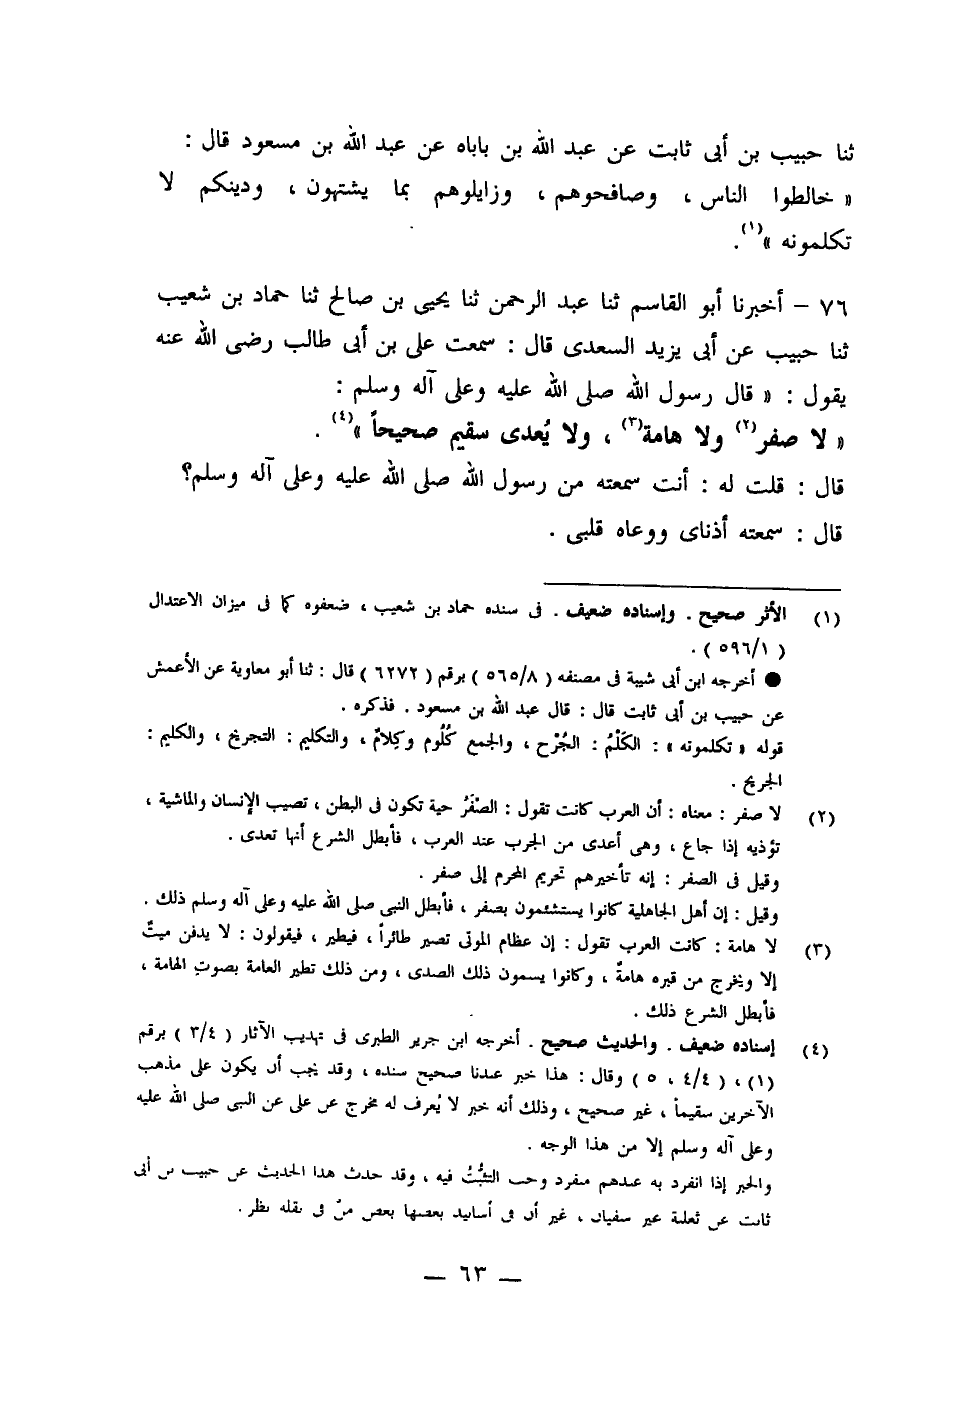 ثنا حبيب بن أبى ثابت عن عبد الله بن باباه عن عبد الله بن مسعود قال :
« خالطوا الناس ، وصافحوهم ، وزايلوهم بما يشتهون ، ودينكم لا
تكلمونه »(١).
٧٦ – أخبرنا أبو القاسم ثنا عبد الرحمن ثنا يحيى بن صالح ثنا حماد بن شعيب
ثنا حبيب عن أبى يزيد السعدى قال : سمعت على بن أبى طالب رضى الله عنه
يقول : « قال رسول الله صلى الله عليه وعلى آله وسلم :
« لا صفر(٢) ولا هامة(٣) ، ولا يُعدى سقيم صحيحاً »(٤) .
قال : قلت له : أنت سمعته من رسول الله صلى الله عليه وعلى آله وسلم؟
قال : سمعته أذناى ووعاه قلبى .
(١) الأثر صحيح . وإسناده ضعيف . فى سنده حماد بن شعيب ، ضعفوه كما فى ميزان الاعتدال
( ٥٩٦/١ ) .
● أخرجه ابن أبى شيبة فى مصنفه ( ٥٦٥/٨ ) برقم ( ٦٢٧٢ ) قال : ثنا أبو معاوية عن الأعمش
عن حبيب بن أبى ثابت قال : قال عبد الله بن مسعود . فذكره .
قوله « تكلمونه » : الكَلْمُ : الجُرْح ، والجمع كُلُوم وكِلامٌ ، والتكليم : التجريح ، والكليم :
الجريح .
(٢) لا صفر : معناه : أن العرب كانت تقول : الصَّفَرُ حية تكون فى البطن ، تصيب الإنسان والماشية ،
تؤذيه إذا جاع ، وهى أعدى من الجرب عند العرب ، فأبطل الشرع أنها تعدى .
وقيل فى الصفر : إنه تأخيرهم تحريم المحرم إلى صفر .
وقيل : إن أهل الجاهلية كانوا يستشئمون بصفر ، فأبطل النبى صلى الله عليه وعلى آله وسلم ذلك .
(٣) لا هامة : كانت العرب تقول : إن عظام الموتى تصير طائراً ، فيطير ، فيقولون : لا يدفن ميتٌ
إلا ويخرج من قبره هامةٌ ، وكانوا يسمون ذلك الصدى ، ومن ذلك تطير العامة بصوت الهامة ،
فأبطل الشرع ذلك .
(٤) إسناده ضعيف . والحديث صحيح . أخرجه ابن جرير الطبرى فى تهذيب الآثار ( ٣/٤ ) برقم
(١) ، ( ٤/٤ ، ٥ ) وقال : هذا خبر عندنا صحيح سنده ، وقد يجب أن يكون على مذهب
الآخرين سقيماً ، غير صحيح ، وذلك أنه خبر لا يُعرف له مخرج عن على عن النبى صلى الله عليه
وعلى آله وسلم إلا من هذا الوجه .
والخبر إذا انفرد به عندهم منفرد وجب التثبُّتُ فيه ، وقد حدث هذا الحديث عن حبيب بن أبى
ثابت عن ثعلبة غير سفيان ، غير أن فى أسانيد بعضها بعض منْ فى نقله نظر .
— ٦٣ —